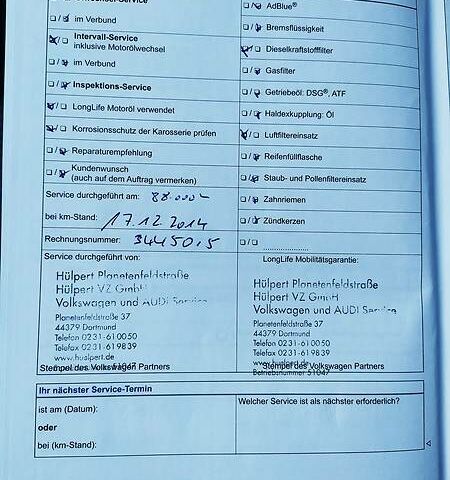 □/□ im Verbund
Intervall-Service
inklusive Motorölwechsel
□/□ im Verbund
□/□ Inspektions-Service
□/□ LongLife Motoröl verwendet
□/□ Korrosionsschutz der Karosserie prüfen
□/□ Reparaturempfehlung
□/□ Kundenwunsch
(auch auf dem Auftrag vermerken)
Service durchgeführt am: 88.000
bei km-Stand: 17.12.2014
Rechnungsnummer:
Service durchgeführt von:
Hülpert Planetenfeldstraße
Hülpert VZ GmbH
Volkswagen und AUDI Service
Planetenfeldstraße 37
44379 Dortmund
Telefon 0231-610050
Telefax 0231-619839
www.huelpert.de
Stempel des Volkswagen Partners
□/□ AdBlue®
□/□ Bremsflüssigkeit
□/□ Dieselkraftstofffilter
□/□ Gasfilter
□/□ Getriebeöl: DSG®, ATF
□/□ Haldexkupplung: Öl
□/□ Luftfiltereinsatz
□/□ Reifenfüllflasche
□/□ Staub- und Pollenfiltereinsatz
□/□ Zahnriemen
□/□ Zündkerzen
□/□ ....................
LongLife Mobilitätsgarantie:
Hülpert Planetenfeldstraße
Hülpert VZ GmbH
Volkswagen und AUDI Service
Planetenfeldstraße 37
44379 Dortmund
Telefon 0231-610050
Telefax 0231-619839
www.huelpert.de
Stempel des Volkswagen Partners
Betriebsnummer 51047
Ihr nächster Service-Termin
ist am (Datum):
oder
bei (km-Stand):
Welcher Service ist als nächster erforderlich?